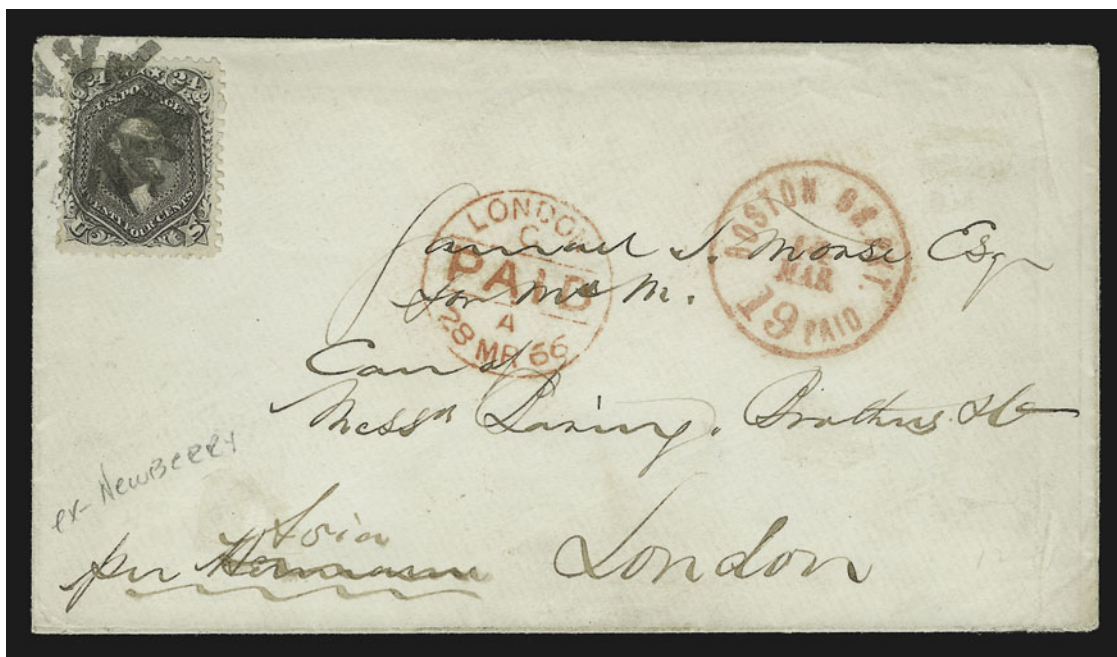 24 24
U.S. POSTAGE
TWENTY FOUR CENTS
U S
LONDON
C
PAID
A
28 MR 66
BOSTON BR. PKT.
MAR
19 PAID
Samuel F. Morse Esqr
for Mr M.
Care of
Messrs Baring, Brothers & Co
ex-NewBERRY
Asia
per
London